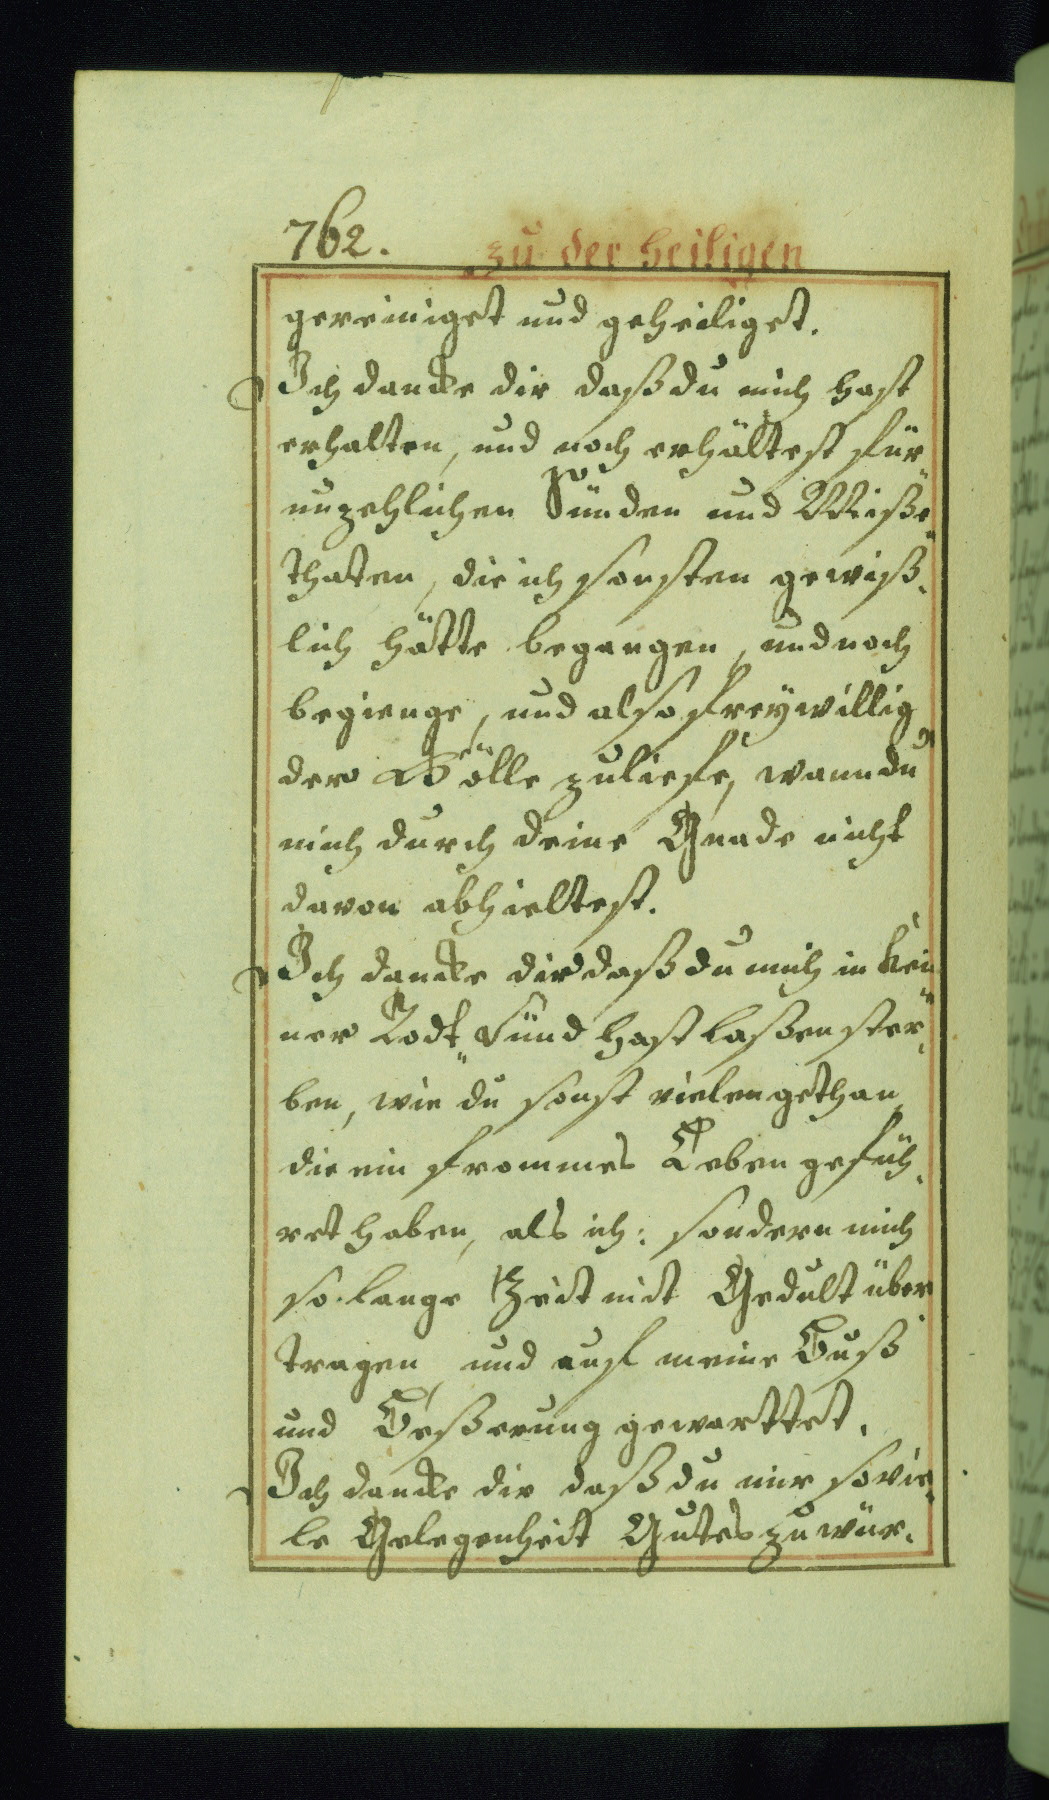 762.
zu der heiligen
gereiniget und geheiliget.
Ich dancke dir daß du mich hast
erhalten, und noch erhältest für
unzehlichen Sünden und Miße„
thaten, die ich sonsten gewiß„
lich hätte begangen, und noch
begienge, und also freywillig
der Hölle zuliefe, wann du
mich durch deine Gnade nicht
davon abhieltest.
Ich dancke dir daß du mich in kei„
ner Todt„Sünd hast laßen ster„
ben, wie du sonst vielen gethan,
die ein frommes Leben gefüh„
ret haben, als ich: sondern mich
so lange Zeit mit Gedult über
tragen, und auf meine Buß
und Beßerung gewarttet.
Ich dancke dir daß du mir so vie„
le Gelegenheit Gutes zu wür„